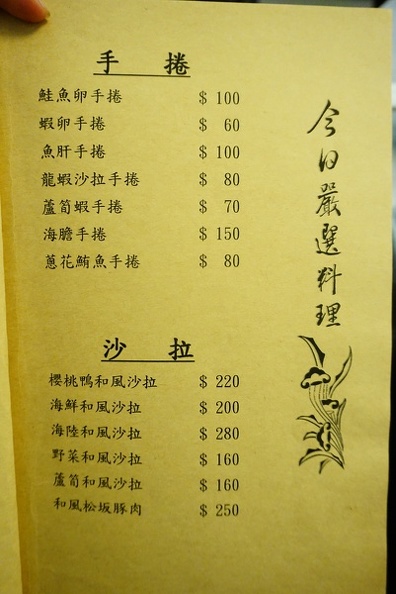 手 捲
鮭魚卵手捲 $ 100
蝦卵手捲 $ 60
魚肝手捲 $ 100
龍蝦沙拉手捲 $ 80
蘆筍蝦手捲 $ 70
海膽手捲 $ 150
蔥花鮪魚手捲 $ 80
沙 拉
櫻桃鴨和風沙拉 $ 220
海鮮和風沙拉 $ 200
海陸和風沙拉 $ 280
野菜和風沙拉 $ 160
蘆筍和風沙拉 $ 160
和風松坂豚肉 $ 250
今日嚴選料理